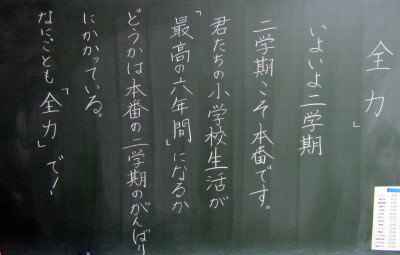 全力」
いよいよ二学期
二学期こそ本番です。
君たちの小学校生活が
「最高の六年間」になるか
どうかは本番の二学期のがんばり
にかかっている。
なにごとも「全力」で！